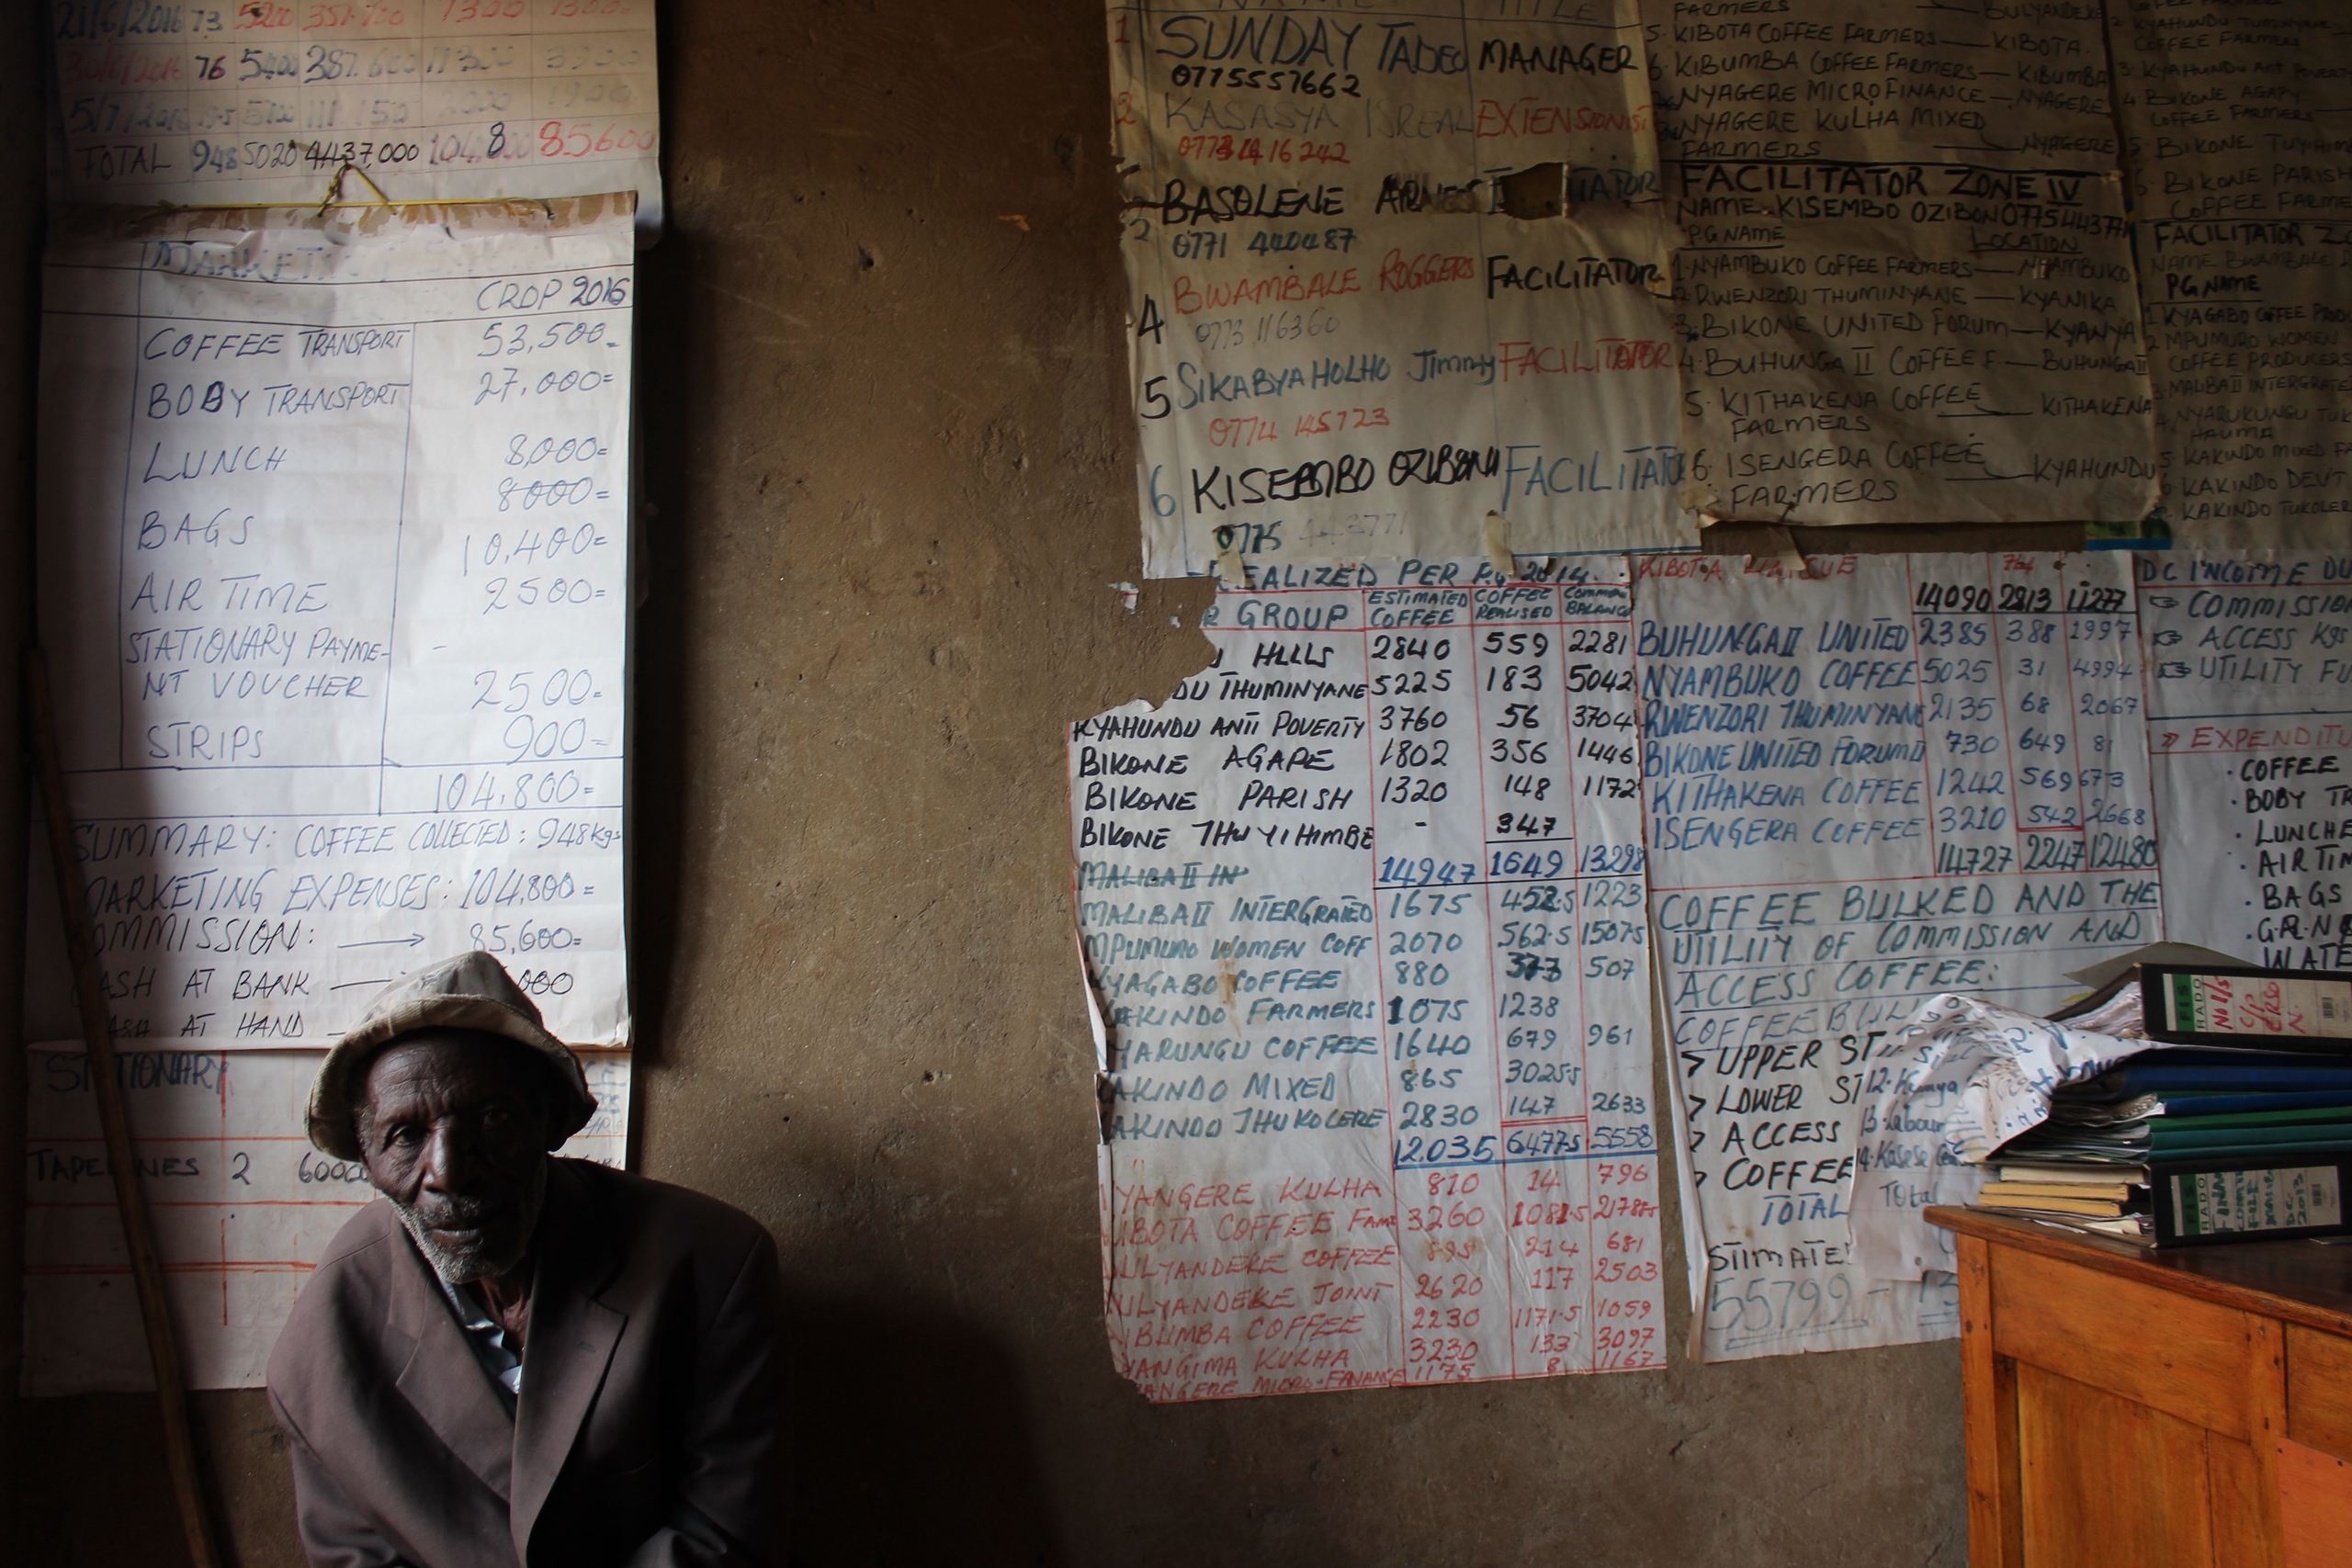 21/6/2016 73 5200 357.700 1300
30/6/2016 76 5400 387.600 3900
5/7/2016 19.5 5700 111.150 2000 1900
TOTAL 948 5020 4437,000 104,800 85600
CROP 2016
COFFEE TRANSPORT 53,500=
BODY TRANSPORT 27,000=
LUNCH 8,000=
8000=
BAGS 10,400=
AIR TIME 2500=
STATIONARY PAYME- -
NT VOUCHER 2500=
STRIPS 900=
104,800=
SUMMARY: COFFEE COLLECTED: 948Kgs
MARKETING EXPENSES: 104,800=
COMMISSION: → 85,600=
CASH AT BANK 000
CASH AT HAND
STATIONARY
TAPE 2 6000
NAME TITLE
1 SUNDAY TADEO MANAGER
0775557662
2 KASASYA ISREAL EXTENSIONIST
3 BASOLENE ARNEST TATOR
0771 440487
4 BWAMBALE ROGGERS FACILITATOR
0773 116360
5 SIKABYAHOLHO Jimmy FACILITATOR
0774 145723
6 KISEMBO OZIBONI FACILITATO
0775 443771
FARMERS BULYANDEKE
5. KIBOTA COFFEE FARMERS — KIBOTA.
6. KIBUMBA COFFEE FARMERS — KIBUMBA
NYAGERE MICROFINANCE — NYAGERE
NYAGERE KULHA MIXED
FARMERS — NYAGERE
FACILITATOR ZONE IV
NAME. KISEMBO OZIBON 0775443771
P.G NAME LOCATION
1. NYAMBUKO COFFEE FARMERS — NYAMBUKO
2. RWENZORI THUMINYANE — KYANIKA
3. BIKONE UNITED FORUM — KYANYA
4. BUHUNGA II COFFEE F. — BUHUNGA II
5. KITHAKENA COFFEE — KITHAKENA
FARMERS
6. ISENGERA COFFEE — KYAHUNDU
FARMERS
KYAHUNDU TUMINYANE
COFFEE FARMERS
3. KYAHUNDU ANT POVERTY
4. BIKONE AGAPY
COFFEE FARMERS
5. BIKONE TUYIHIM
BIKONE PARISH
COFFEE FARME
FACILITATOR Z
NAME BWAMBALE
P.G NAME
1 KYAGABO COFFEE PRODU
2 MPUMURO WOMEN
COFFEE PRODUCERS
3. MALIBA II INTERGRATE
4. NYARUKUNGU TU
HAUMA
5. KAKINDO MIXED FA
6. KAKINDO DEVT
KAKINDO TUKOLER
REALIZED PER P.G 2014.
R GROUP ESTIMATED COFFEE COFFEE REALISED COMMON BALANCE
HILLS 2840 559 2281
DU THUMINYANE 5225 183 5042
KYAHUNDU ANTI POVERTY 3760 56 3704
BIKONE AGAPE 1802 356 1446
BIKONE PARISH 1320 148 1172
BIKONE THUYIHIMBE - 347
MALIBA II IN 14947 1649 13298
MALIBA II INTERGRATED 1675 452.5 1223
MPUMURO WOMEN COFF 2070 562.5 1507.5
KYAGABO COFFEE 880 507
AKINDO FARMERS 1075 1238
YARUNGU COFFEE 1640 679 961
AKINDO MIXED 865 3025.5
AKINDO THUKOLERE 2830 147 2633
12.035 6477.5 5558
YANGERE KULHA 810 14 796
IBOTA COFFEE Fam 3260 1081.5 2178.5
ULYANDERE COFFEE 895 214 681
ULYANDEKE JOINT 2620 117 2503
IBUMBA COFFEE 2230 1171.5 1059
YANGIMA KULHA 3230 133 3097
ANGERE MICRO-FANANCE 1175 8 1167
KIBOTA
14090 2813 11277
BUHUNGA II UNITED 2385 388 1997
NYAMBUKO COFFEE 5025 31 4994
RWENZORI THUMINYANE 2135 68 2067
BIKONE UNITED FORUM 730 649 81
KITHAKENA COFFEE 1242 569 673
ISENGERA COFFEE 3210 542 2668
14727 2247 12480
COFFEE BULKED AND THE
UTILITY OF COMMISSION AND
ACCESS COFFEE:
COFFEE BUL
> UPPER ST
> LOWER ST
> ACCESS
> COFFEE
TOTAL
STIMATE
55799 -
12. Kenya
13. labour
14. Kasese
Total
DC INCOME DU
COMMISSIO
ACCESS Kgs
UTILITY FU
» EXPENDITU
. COFFEE
. BODY TR
. LUNCHE
. AIR TIM
. BAGS
. G.R.N
WATE
FIS
RADO
No 1/5
FIS
RADO
FILE
MALIBA
DC
2013